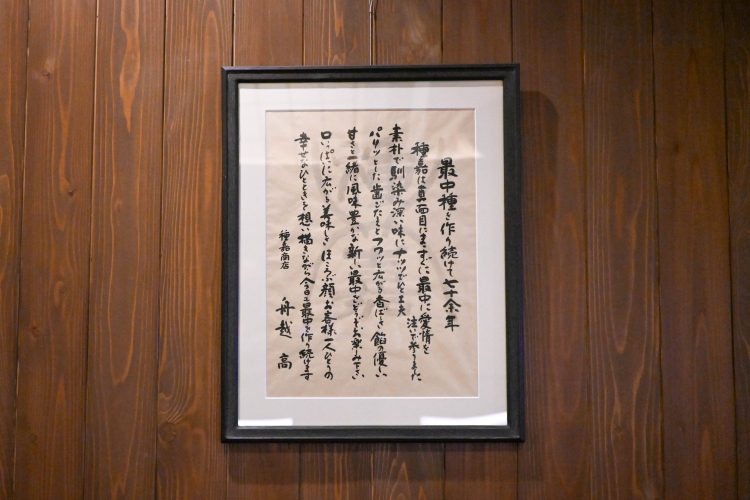 最中種を作り続けて七十余年
種嘉は真面目にまっすぐに最中に愛情を
注いで参りました
素朴で馴染み深い味にナッツでひと工夫
パリッとした歯ごたえとフワッと広がる香ばしさ餡の優しい
甘さと一緒に風味豊かな新しい最中をどうぞお楽しみ下さい
口いっぱいに広がる美味しさほころぶ顔お客様一人ひとりの
幸せなひとときを想い描きながら今日も最中を作り続けます
種嘉商店
舟越 高